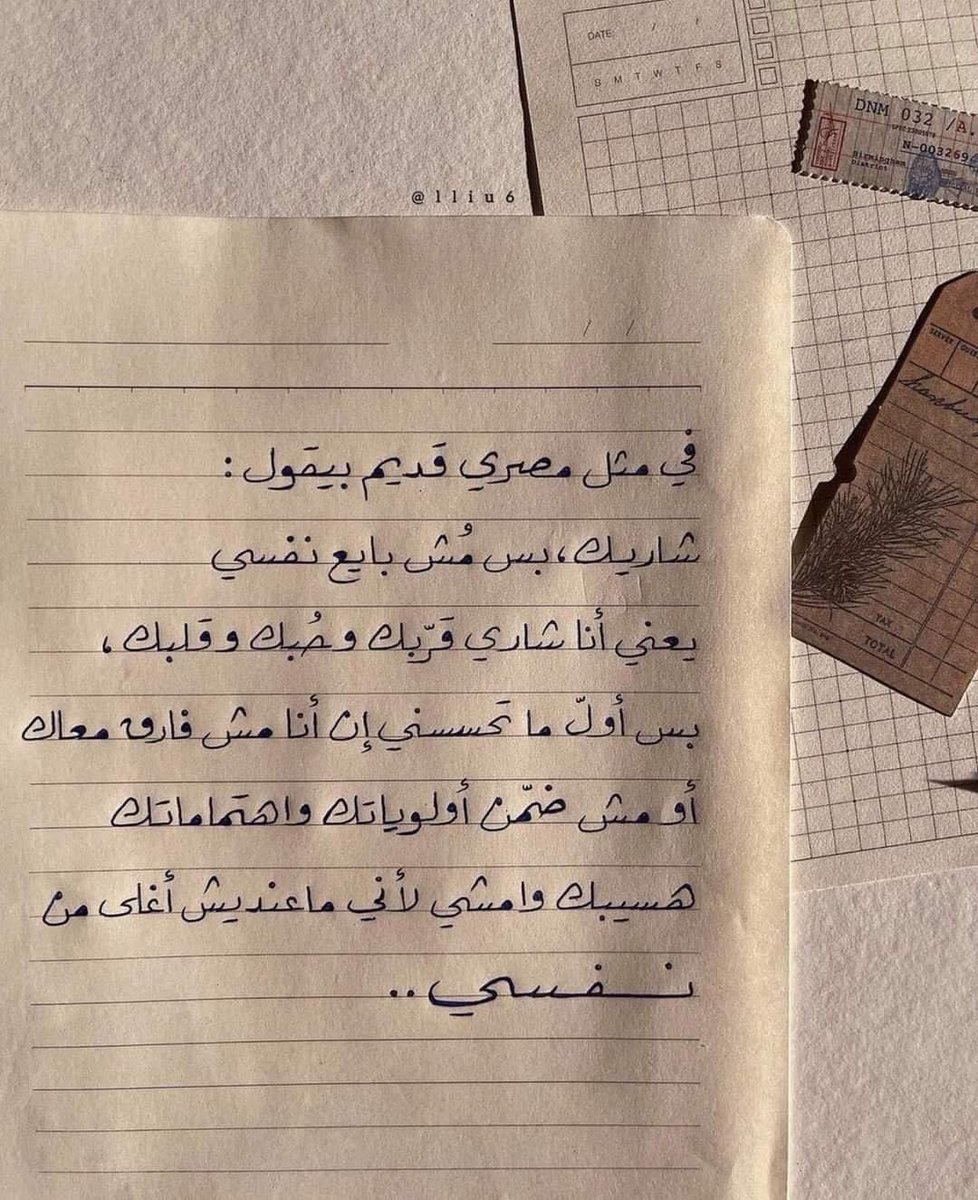 DATE: / /
S M T W T F S
DNM 032 /A.
N-003269
Birmingham
District
@lliu6
/ /
SERVER
TAX
TOTAL
في مثل مصري قديم بيقول :
شاريك، بس مُش بايع نفسي
يعني أنا شاري قَرّبك وحُبك وقلبك ،
بس أولّ ما تحسسني إن أنا مش فارق معاك
أو مش ضمّن أولوياتك واهتماماتك
هسيبك وامشي لأني ماعنديش أغلى من
نـفـسي ..